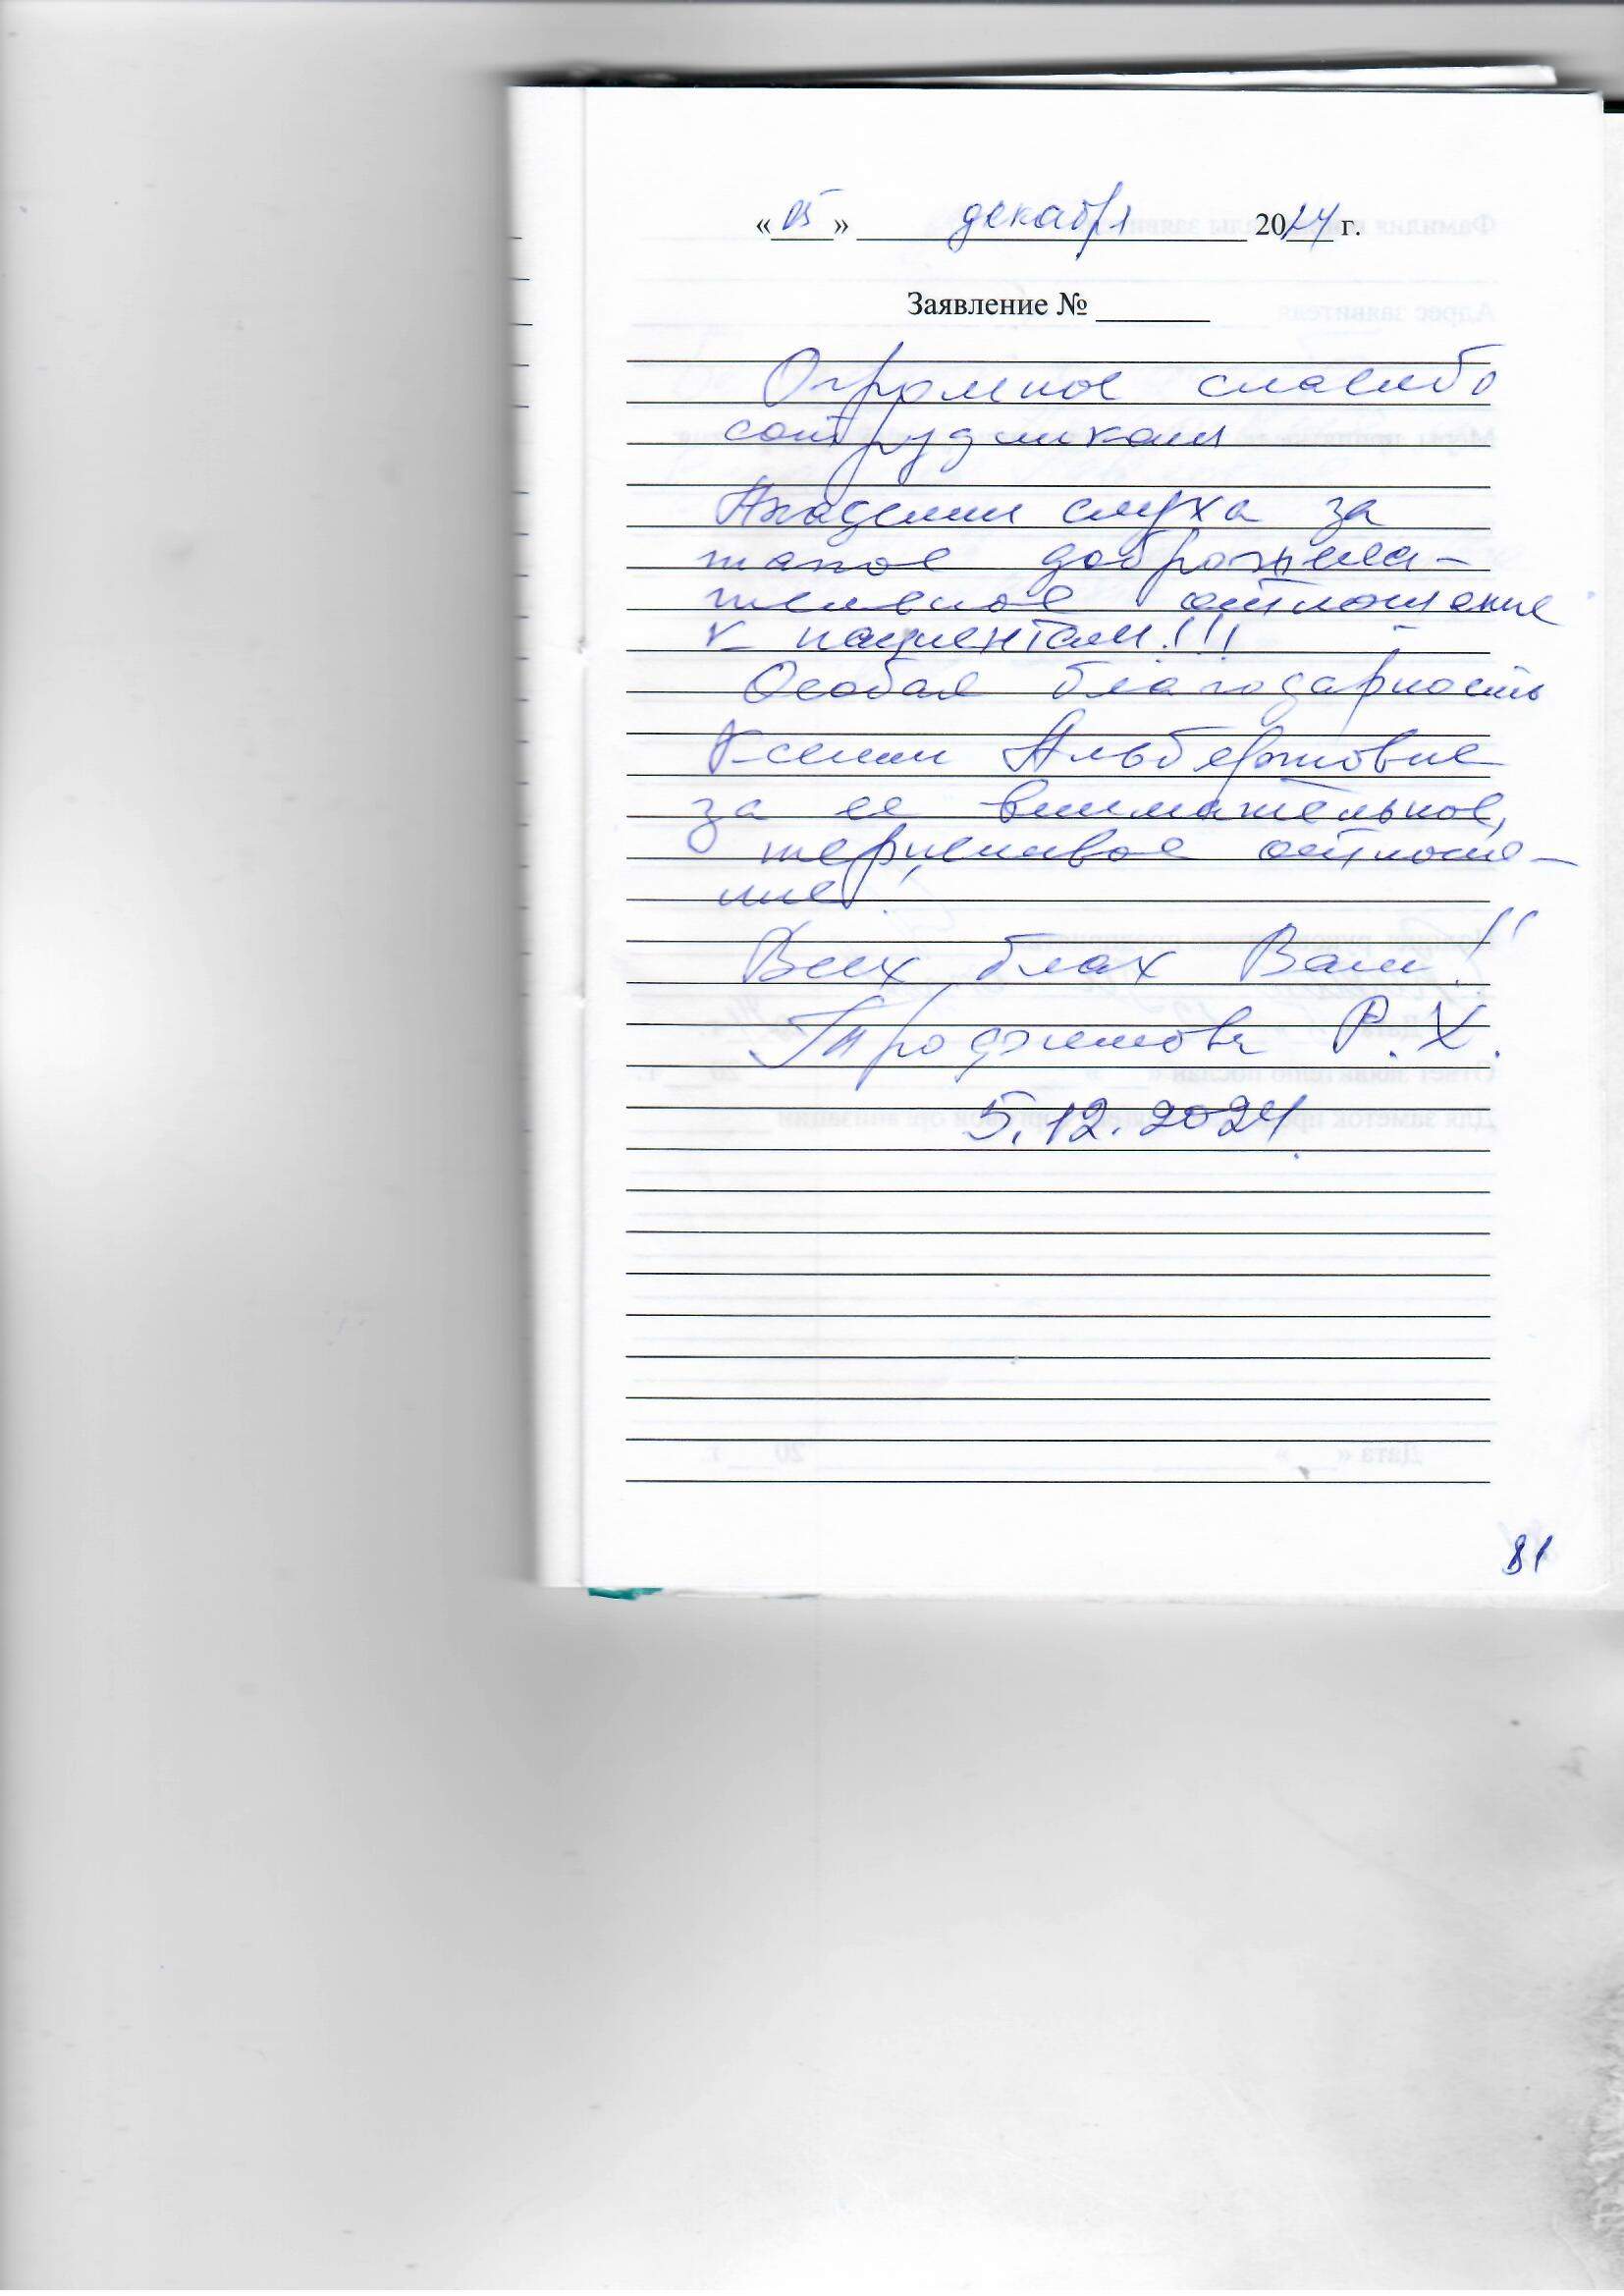 «05» декабря 2024 г.
Заявление №
Огромное спасибо
сотрудникам
Академии слуха за
такое доброжела-
тельное отношение
к пациентам!!!
Особая благодарность
Ксении Альбертовне
за ее внимательное,
терпеливое отноше-
ние!
Всех благ Вам!!!
Р.Х.
5.12.2024
81